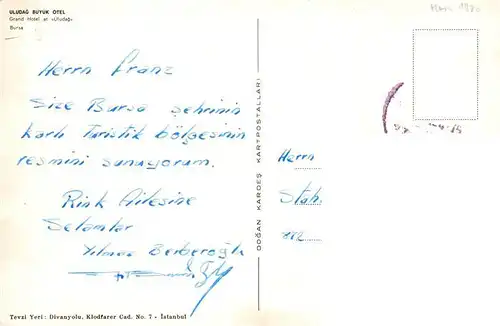 ULUDAĞ BÜYÜK OTEL
Grand Hotel at «Uludağ»
Bursa
Herrn Franz
Size Bursa şehrinin
karlı Turistik bölgesinin
resmini sunuyorum.
Rink Ailesine
Selamlar
Yılmaz Berberoğlu
DOĞAN KARDEŞ KARTPOSTALLARI
Herrn
Stah
Tevzi Yeri : Divanyolu, Klodfarer Cad. No. 7 - İstanbul